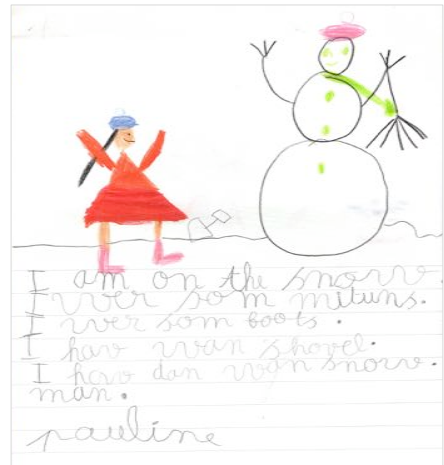 I am on the snow.
I wer som mituns.
I wer som boots.
I hav wan shovel.
I hav dan wan snow.
man.
pauline